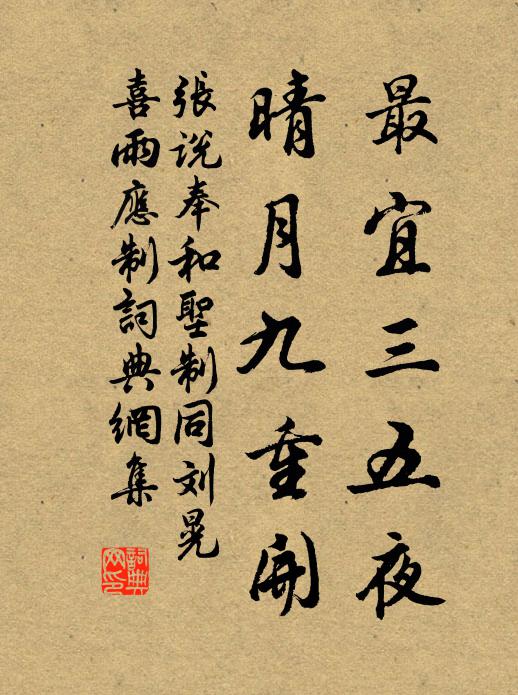 最宜三五夜
晴月九重開
張说奉和聖制同刘晃
喜雨應制詞典網集
詞典网印